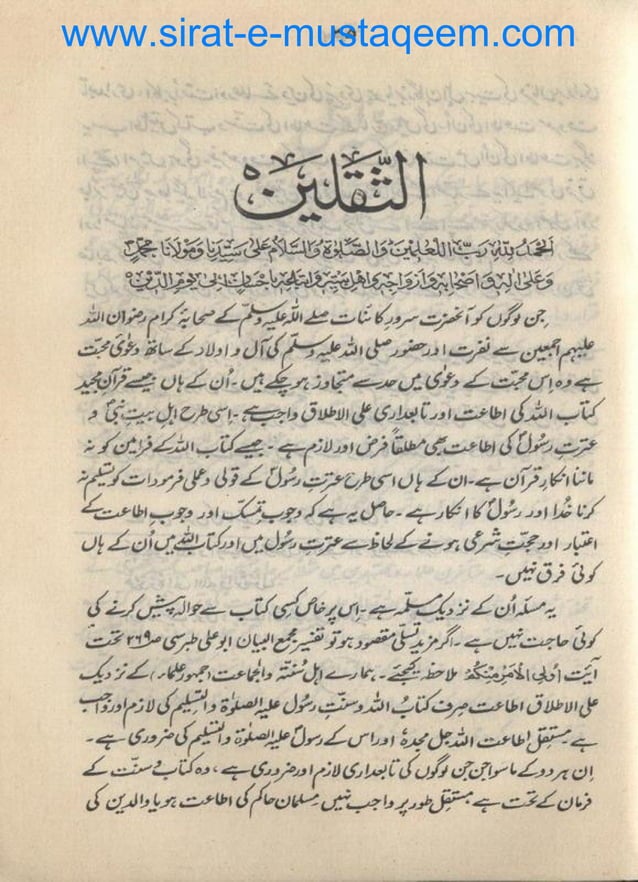 www.sirat-e-mustaqeem.com
الثَّقلین
الحمد للہ ربّ العلمین والصّلوٰۃ والسّلام علی سیدنا ومولانا محمدٍ
وعلیٰ الہٖ واصحابہٖ وازواجہٖ واھل بیتہٖ واتباعہٖ باحسان الیٰ یوم الدّین
جن لوگوں کو آنحضرت سرورِ کائنات صلے اللہ علیہ وسلم کے صحابۂ کرام رضوان اللہ
علیہم اجمعین سے نفرت اور حضور صلی اللہ علیہ وسلم کی آل و اولاد کے ساتھ دعوٰی محبت
ہے وہ اس محبت کے دعوٰی میں حد سے متجاوز ہو چکے ہیں۔ اُن کے ہاں جیسے قرآن مجید
کتاب اللہ کی اطاعت اور تابعداری علی الاطلاق واجب ہے۔ اسی طرح اہل بیت نبیؐ و
عترتِ رسولؐ کی اطاعت بھی مطلقاً فرض اور لازم ہے۔ جیسے کتاب اللہ کے فرامین کو نہ
ماننا انکارِ قرآن ہے۔ ان کے ہاں اسی طرح عترتِ رسولؐ کے قولی و عملی فرمودات کو تسلیم نہ
کرنا خُدا اور رسولؐ کا انکار ہے۔ حاصل یہ ہے کہ وجوبِ تمسک اور وجوبِ اطاعت کے
اعتبار اور حجتِ شرعی ہونے کے لحاظ سے عترتِ رسول میں اور کتاب اللہ میں اُن کے ہاں
کوئی فرق نہیں۔
یہ مسئلہ اُن کے نزدیک مسلّمہ ہے۔ اس پر خاص کسی کتاب سے حوالہ پیش کرنے کی
کوئی حاجت نہیں ہے۔ اگر مزید تسلّی مقصود ہو تو تفسیر مجمع البیان ابو علی طبرسی ص ۲۶۹ تحت
آیت اُولی الامر منکم ملاحظہ کیجئے۔ ہمارے اہل سُنّتہ والجماعت (جمہور علماء) کے نزدیک
علی الاطلاق اطاعت صِرف کتابُ اللہ و سنّتِ رسُول علیہ الصلوٰۃ والتسلیم کی لازم اور واجب
ہے۔ مستقل اطاعت اللہ جل مجدہٗ اور اس کے رسولؐ علیہ الصلوٰۃ والتسلیم کی ضروری ہے۔
اِن ہر دو کے ماسوا جن جن لوگوں کی تابعداری لازم اور ضروری ہے، وہ کتاب و سنّت کے
فرمان کے تحت ہے مستقل طور پر واجب نہیں مسلمان حاکم کی اطاعت ہو یا والدین کی